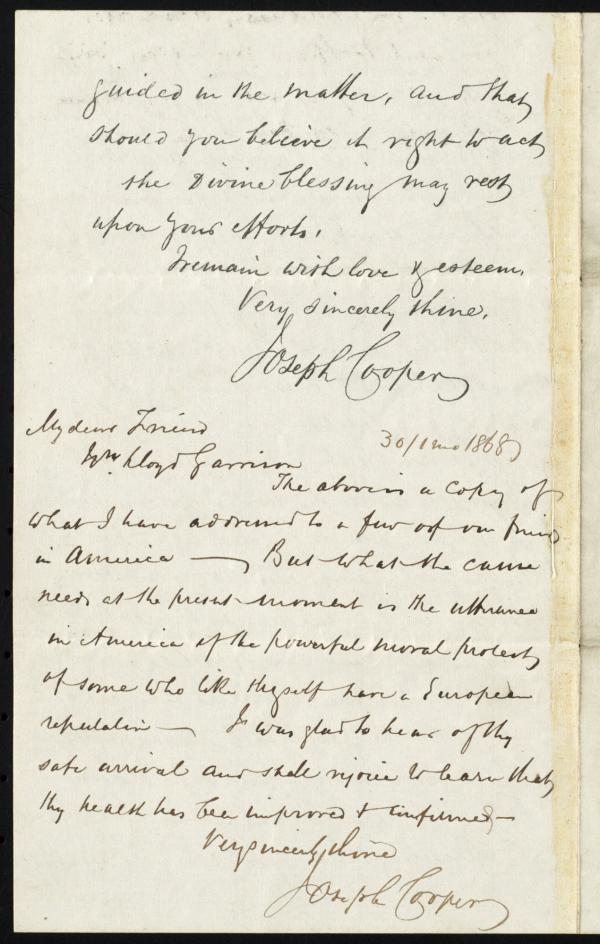 guided in the matter, and that
should you believe it right to act
the Divine blessing may rest
upon your efforts.
I remain with love & esteem.
Very sincerely thine.
Joseph Cooper
30/1mo 1868
My dear Friend
Wm Lloyd Garrison
The above is a copy of
what I have addressed to a few of our friends
in America — But what the cause
needs at the present moment is the utterance
in America of the powerful moral protest
of some who like thyself have a European
reputation — I was glad to hear of thy
safe arrival and shall rejoice to learn that
thy health has been improved & confirmed —
Very sincerely thine
Joseph Cooper